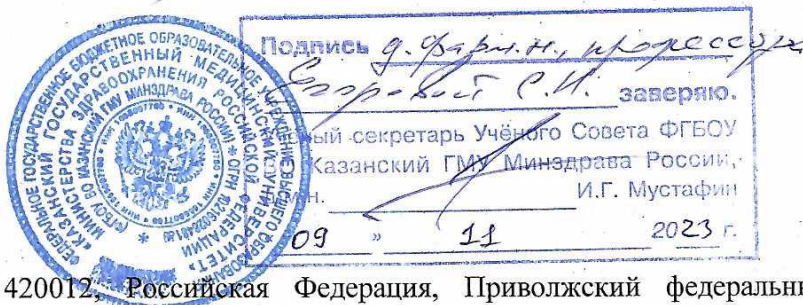 ФЕДЕРАЛЬНОЕ ГОСУДАРСТВЕННОЕ БЮДЖЕТНОЕ ОБРАЗОВАТЕЛЬНОЕ УЧРЕЖДЕНИЕ ВЫСШЕГО ОБРАЗОВАНИЯ
«КАЗАНСКИЙ ГОСУДАРСТВЕННЫЙ МЕДИЦИНСКИЙ УНИВЕРСИТЕТ»
МИНИСТЕРСТВА ЗДРАВООХРАНЕНИЯ РОССИЙСКОЙ ФЕДЕРАЦИИ
Подпись д.фарм.н., профессора
Егоровой С.Н. заверяю.
секретарь Учёного Совета ФГБОУ
Казанский ГМУ Минздрава России,
И.Г. Мустафин
09 » 11 2023 г.
420012, Российская Федерация, Приволжский